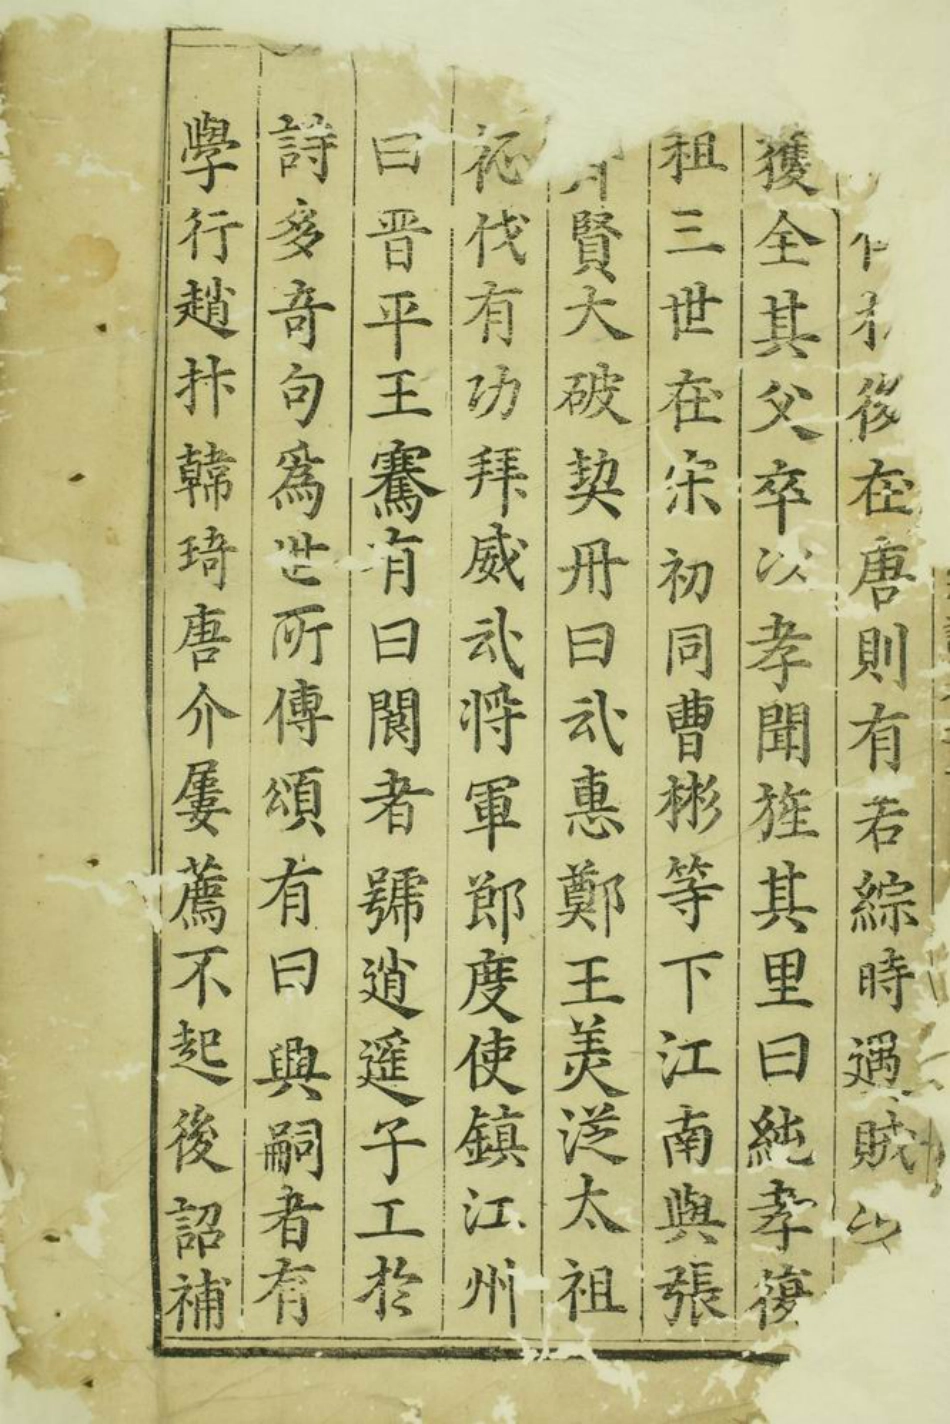 後在唐則有若綜時遇賊以
獲全其父卒以孝聞旌其里曰純孝復
祖三世在宋初同曹彬等下江南與張
賢大破契丹曰武惠鄭王美從太祖
征伐有功拜威武將軍節度使鎮江州
曰晋平王騫有曰閬者號逍遥子工於
詩多奇句爲世所傳頌有曰興嗣者有
學行趙抃韓琦唐介屢薦不起後詔補